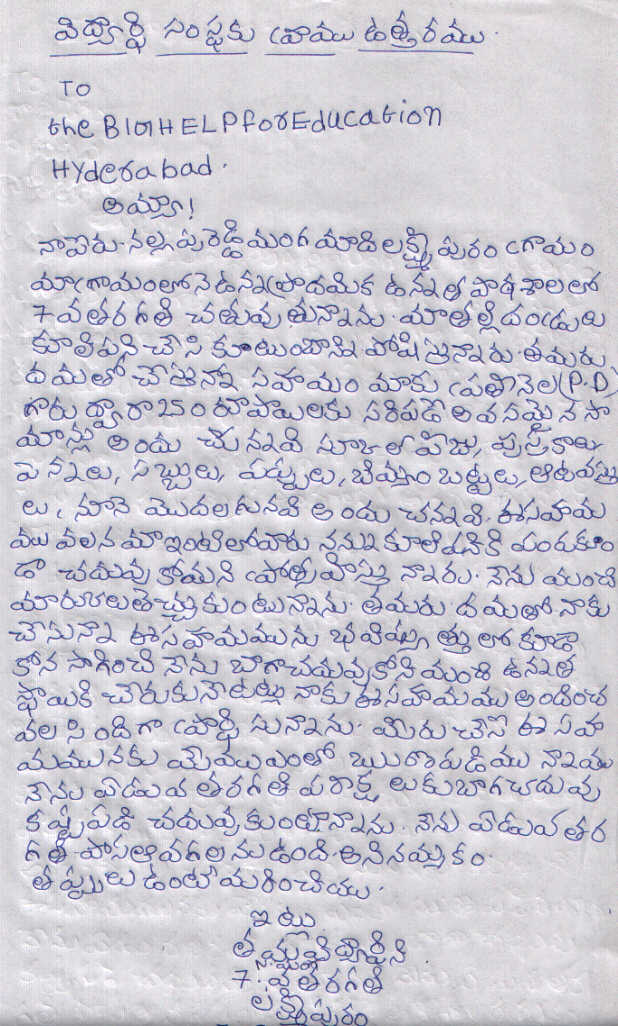 విద్యార్థి సంస్థకు వ్రాయు ఉత్తరము.
TO
the BIGHELP for Education
Hyderabad.
అమ్మా!
నాపేరు. నల్లపురెడ్డి మంగ మాది లక్ష్మీపురం గ్రామం
మా గ్రామంలోనే ఉన్న ప్రాదమిక ఉన్నత పాఠశాలలో
7వ తరగతి చదువుతున్నాను. మాతల్లి దండ్రులు
కూలిపని చేసి కూటుంబాన్ని పోషిస్తున్నారు. తమరు
దయతో చేస్తున్న సహాయం మాకు ప్రతినెల (P.D)
గారు ద్వారా 250 రూపాయిలకు సరిపడే అవసమైన సా
మాన్లు అందుచున్నవి స్కూల్ ఫీజు, పుస్తకాలు
పెన్నులు, సబ్బులు, పప్పులు, బియ్యం బట్టలు, ఆటవస్తు
లు, నూనె మొదలగునవి అందుచున్నవి. ఈసహాయ
ము వలన మాఇంటిలోవారు నన్ను కూలిపనికి పంపకుం
డా చదువుకోమని ప్రోత్సహిస్తున్నారు. నేను మంచి
మారుకులు తెచ్చుకుంటున్నాను. తమరు దయతో నాకు
చేసున్నా ఈసహాయమును భవిష్యత్తులో కూడా
కొనసాగించి నేను బాగాచదువుకోని మంచి ఉన్నత
స్థాయికి చేరుకునేటట్లు నాకు ఈసహాయము అందించ
వలసిందిగా ప్రార్థిసున్నాను. మీరు చేసే ఈ సహా
యమునకు మేమెంతో ఋణపడియున్నాము
నేను ఏడువ తరగతి పరీక్షలుకు బాగచదువు
కష్టపడి చదువుకుంటాన్నాను. నేను ఏడువతర
గతి పాసఅవగలను ఉంది అనినమ్మకం.
తప్పులు ఉంటే మరించియు.
ఇటు
తమ్మ విద్యార్థిని
7.వతరగతి
లక్ష్మీపురం